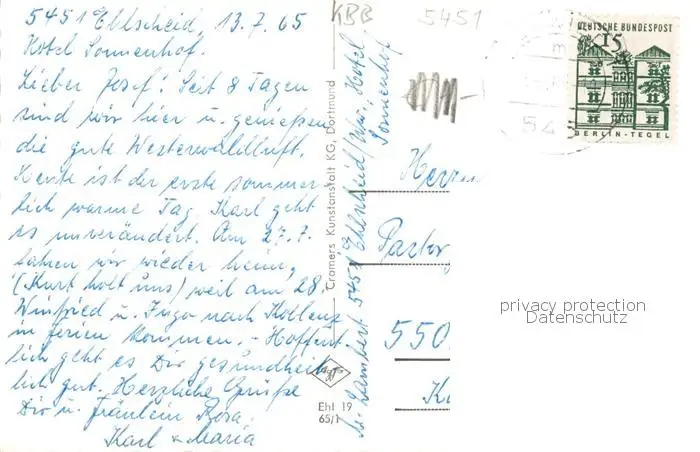 5451 Ehlscheid, 13.7.65
Hotel Sonnenhof.
Lieber Josef! Seit 8 Tagen
sind wir hier u. genießen
die gute Westerwaldluft.
Heute ist der erste sommer-
lich warme Tag. Karl geht
es unverändert. Am 27.7.
fahren wir wieder heim,
(Kurt holt uns) weil am 28.
Winfried u. Ingo nach Koblenz
in Ferien kommen. - Hoffent-
lich geht es Dir gesundheit-
lich gut. Herzliche Grüße
Dir u. Fräulein Rosa.
Karl & Maria
KBB
5451
Lambert 5451 Ehlscheid/ Hotel
Sonnenhof
Cramers Kunstanstalt KG, Dortmund
Ehl 19
65/1
54
DEUTSCHE BUNDESPOST
15
BERLIN-TEGEL
Herrn
Pastor
550
K
privacy protection
Datenschutz